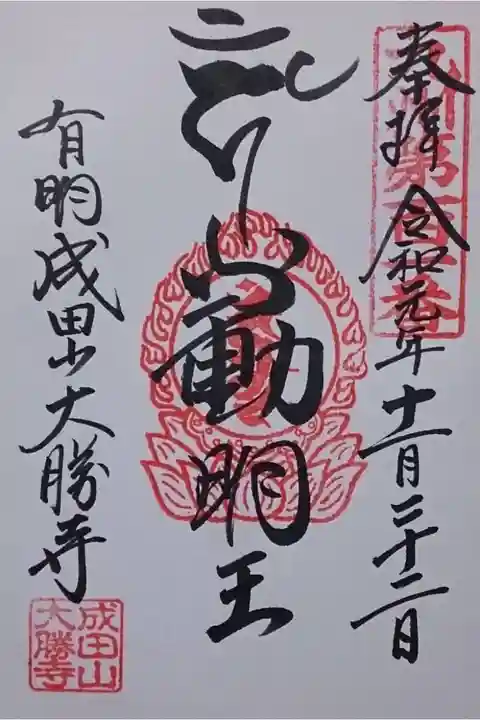 奉拝 令和元年十一月二十二日
第百
番
不動明王
有明成田山大勝寺
成田山
大勝寺